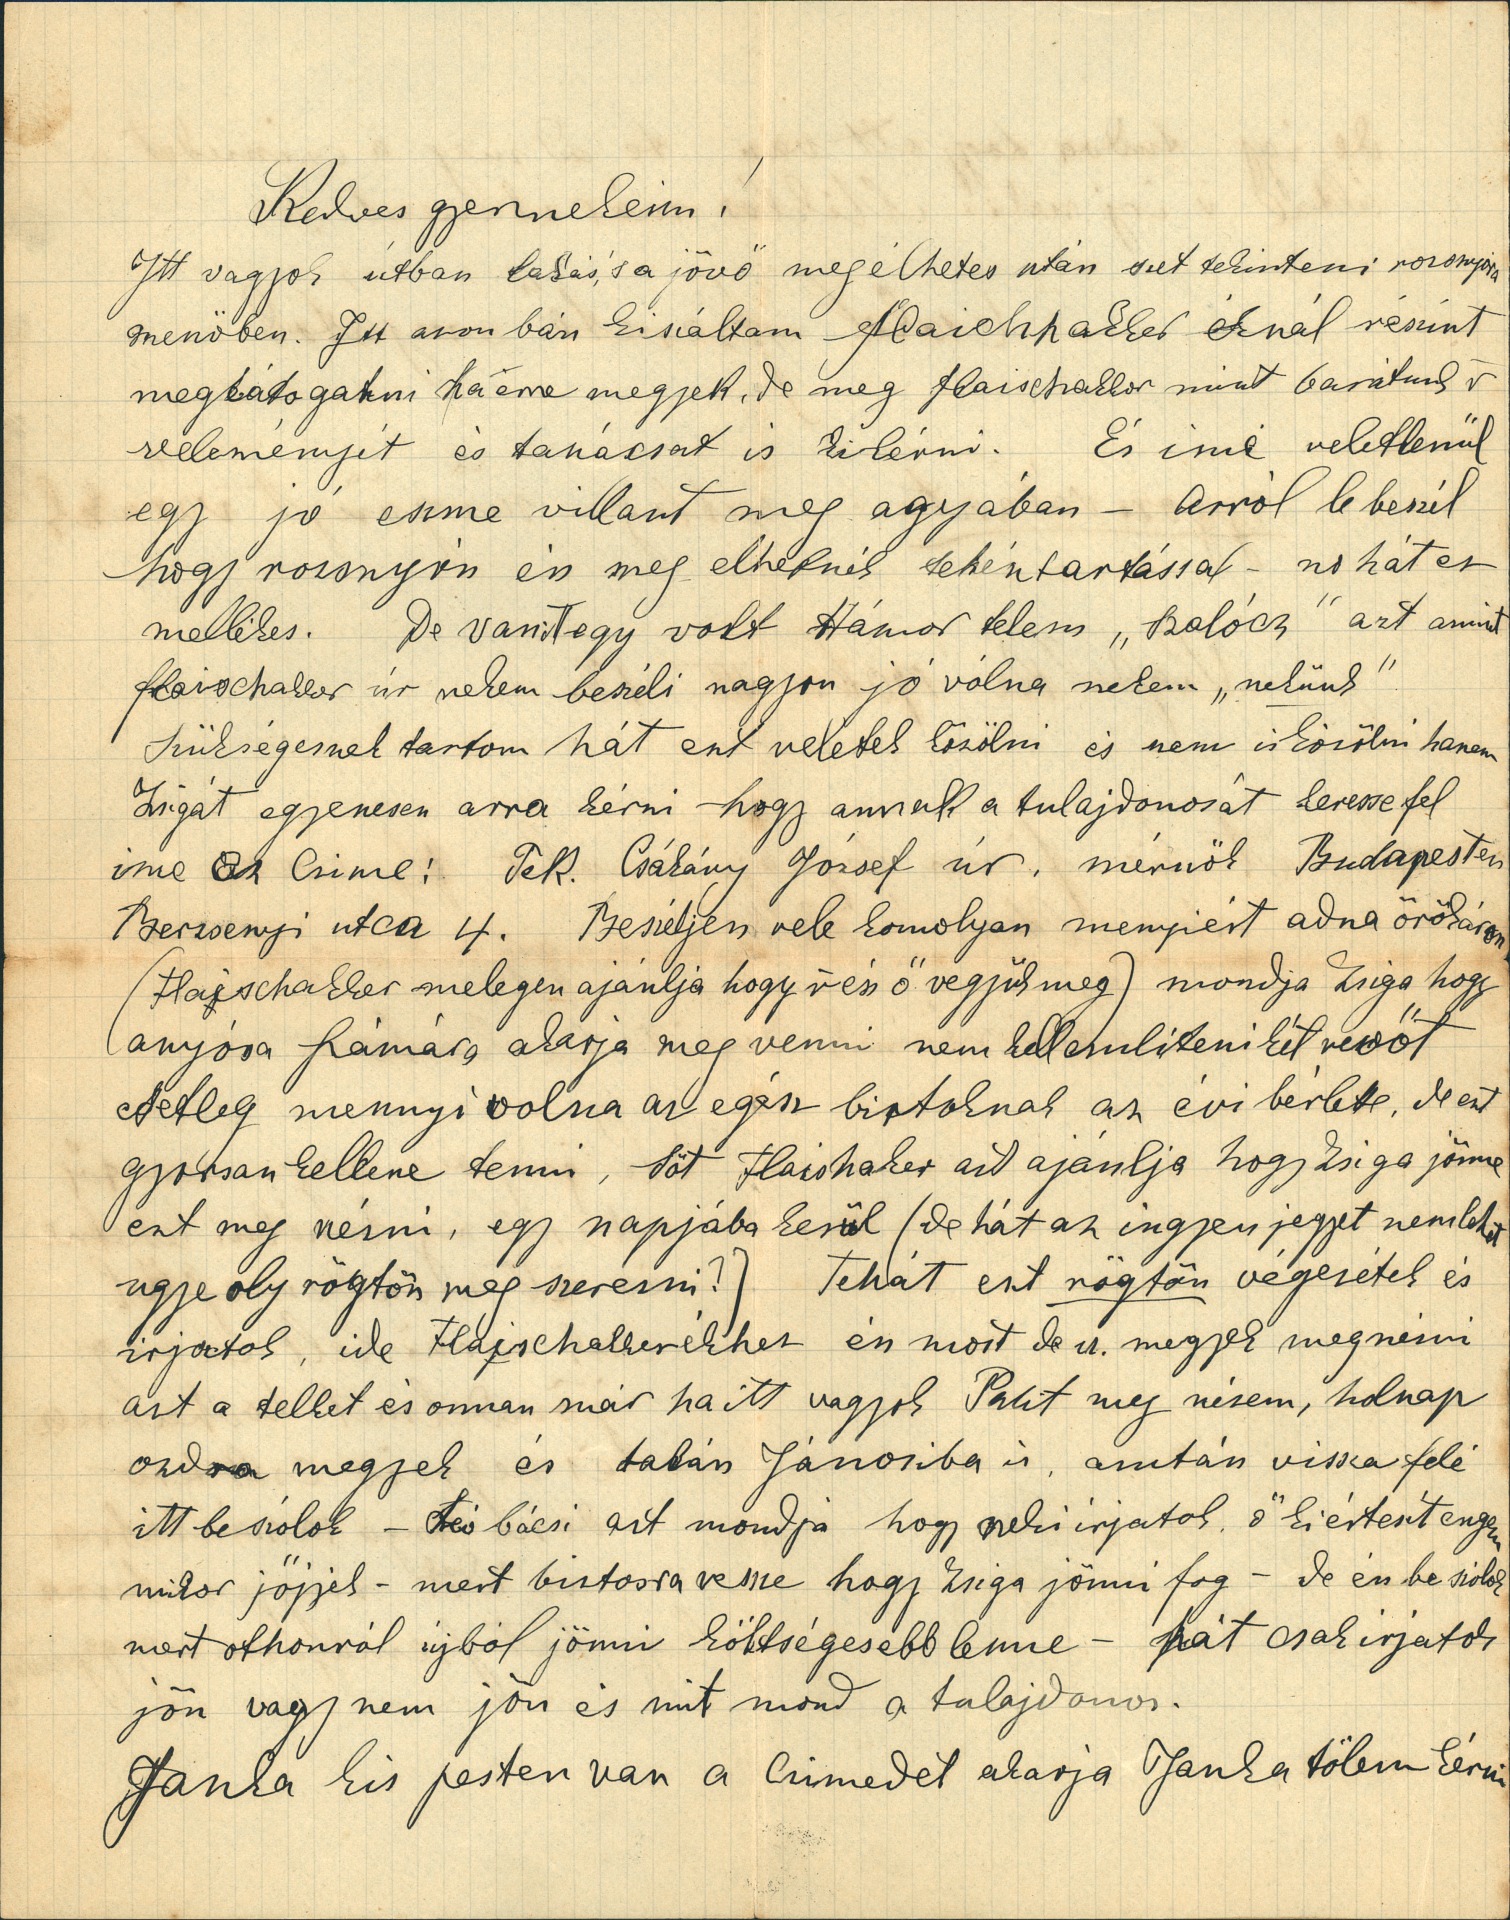 Kedves gyermekeim!
Itt vagyok útban lakás, s a jövő megélhetes után szet tekinteni rozsnyóra
menőben. Itt azonban kiszáltam Flaichhakker éknál részint
meglátogatni ha erre megyek, de meg flaischakker mint barátunk
veleményét és tanácsat is kikérni. És ime veletlenül
egy jó eszme villant meg agyában – arról le beszél
hogy rozsnyón én meg élhetnék tehéntartással – no hát ez
mellékes. De van itt egy volt Hámor telem „Balócz" azt amint
flaischakker úr nekem beszéli nagyon jó vólna nekem „nekünk"
szükségesnek tartom hát ezt veletek közölni és nem is közölni hanem
Zsigát egyenesen arra kérni hogy annak a tulajdonosát keresse fel
ime az Czime: Tek. Csákány József úr, mérnök Budapesten
Berzsenyi utca 4. Beszéljen vele komolyan menyiért adna örökáron
(Flajschakker melegen ajánlja hogy én s ő vegyük meg) mondja Zsiga hogy
anyósa számára akarja meg venni nem kell emliteni két vevőt
esetleg mennyi volna az egész birtoknak az évi bérlete, de ezt
gyorsan kellene tenni, sőt Flaishaker azt ajánlja hogy Zsiga jönne
ezt meg nézni, egy napjába kerül (de hát az ingyen jegyet nem lehet
ugye oly rögtön meg szerezni?) Tehát ezt rögtön végezétek és
irjatok, ide Flajschakkerékhez én most de u. megyek megnézni
azt a telket és onnan már ha itt vagyok Pakit meg nézem, holnap
ozdra megyek és talán Jánosiba is, azután vissza felé
itt beszólok – Teó bácsi azt mondja hogy neki irjatok, ő kiértesit engem
mikor jöjjek – mert biztosra vesze hogy Zsiga jönni fog – de én be szólok
mert othonról újból jönni költségesebb lenne – hát csak irjatok
jön vagy nem jön és mit mond a tulajdonos.
Janka kis pesten van a Czimedét akarja Janka tőlem kérni